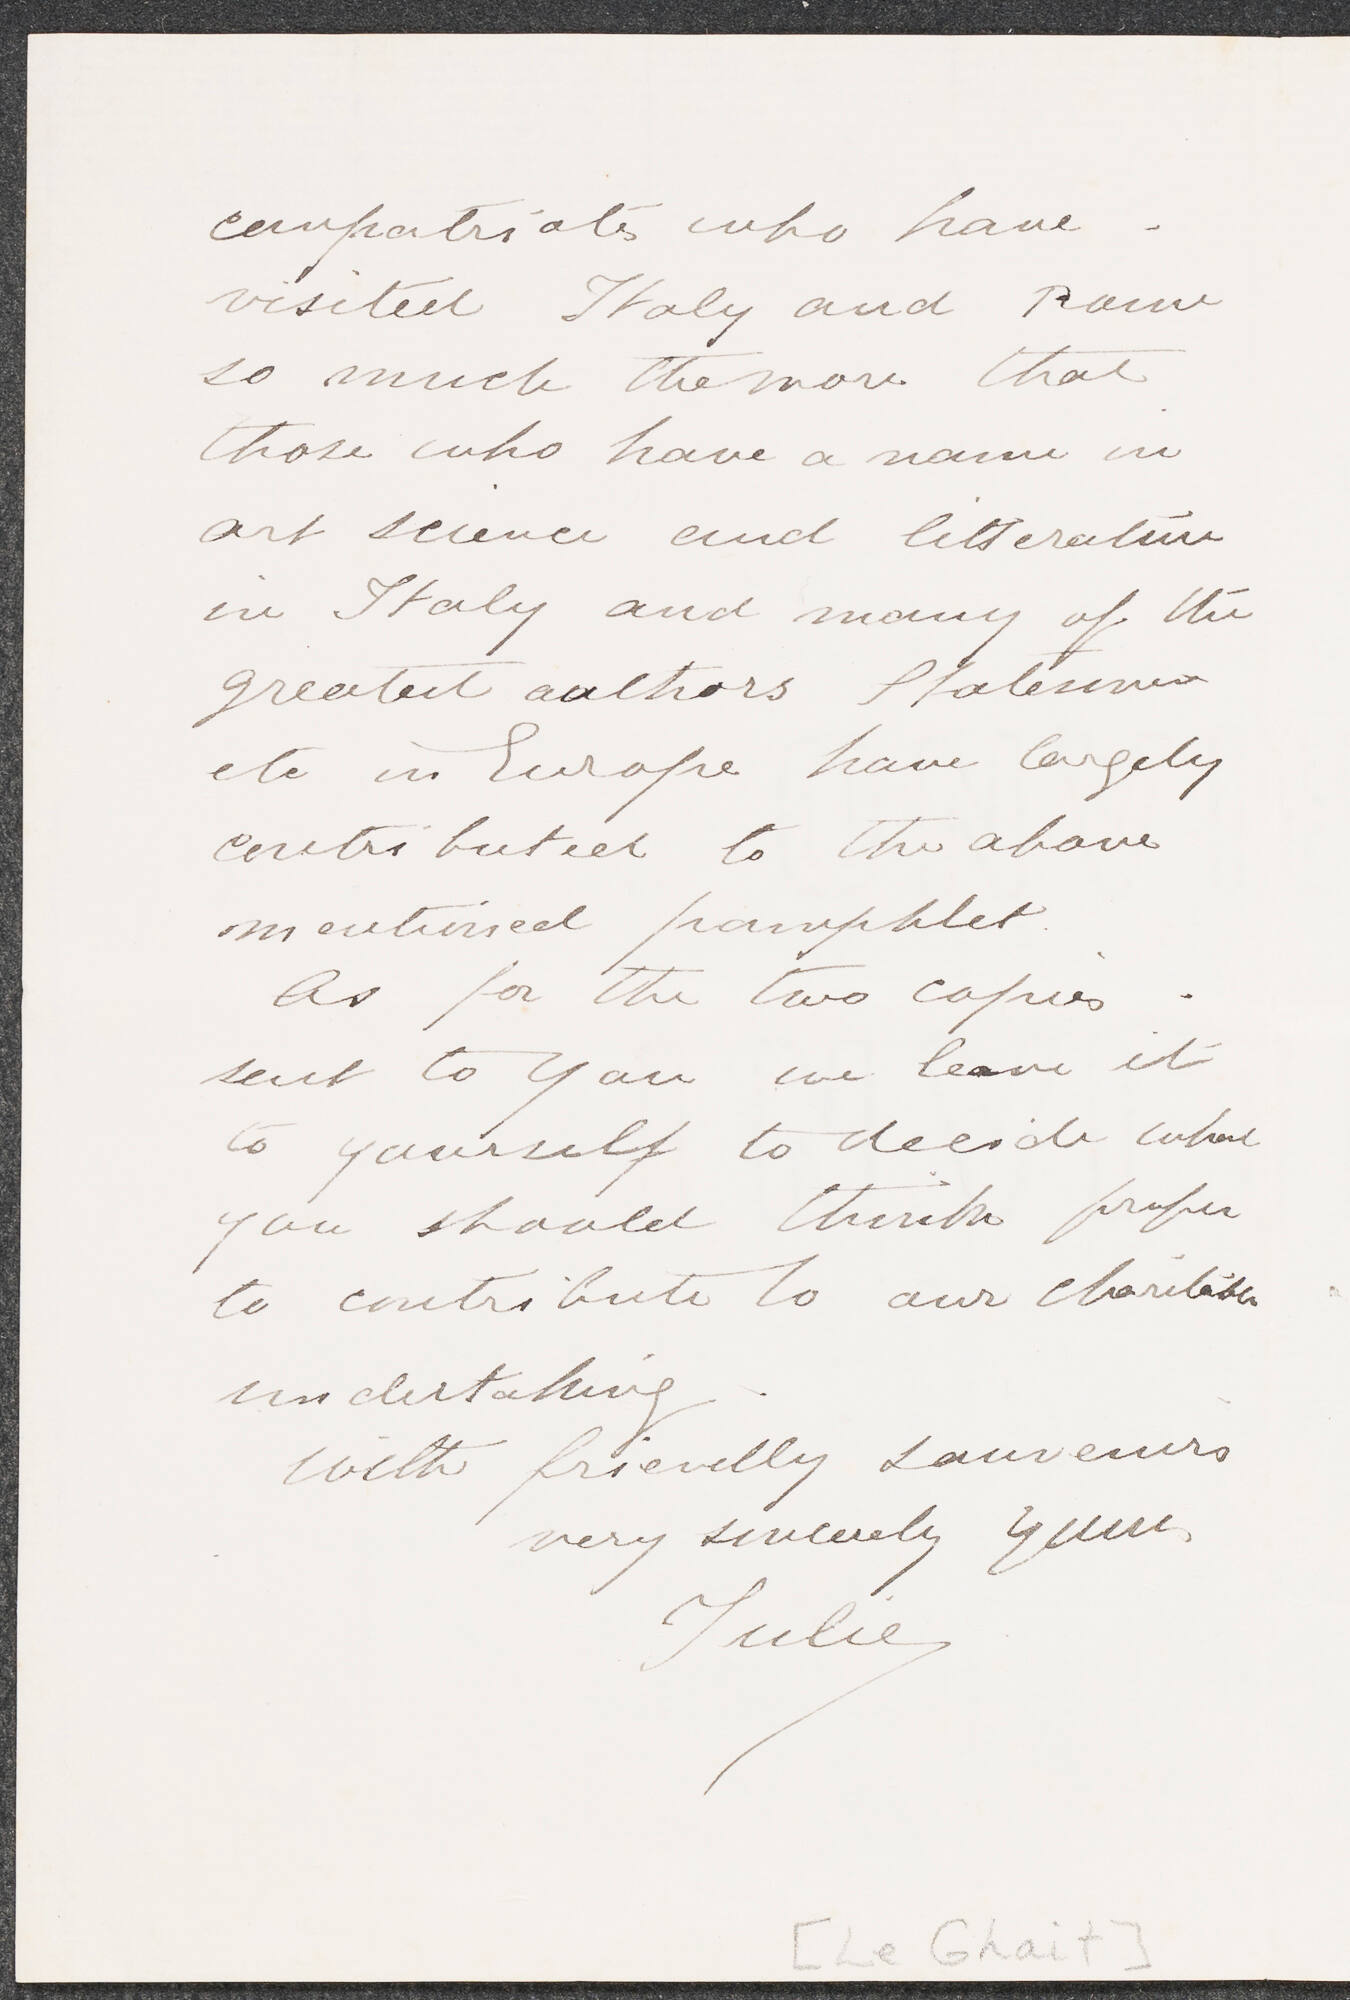 compatriots who have -
visited Italy and Rome
so much the more that
those who have a name in
art science and litterature
in Italy and many of the
greatest authors Statesmen
etc in Europe have largely
contributed to the above
mentioned pamphlet.
As for the two copies -
sent to you we leave it
to yourself to decide what
you should think proper
to contribute to our charitable
undertaking.
With friendly souvenirs
very sincerely yours
Julie
[Le Ghait]